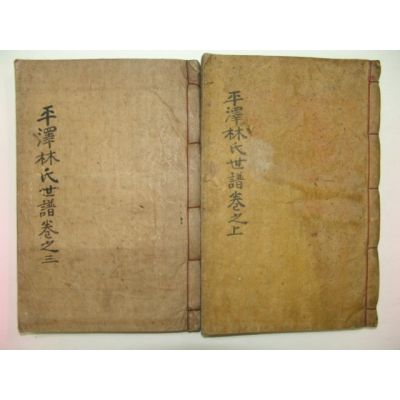 平澤林氏世譜卷之上
平澤林氏世譜卷之三